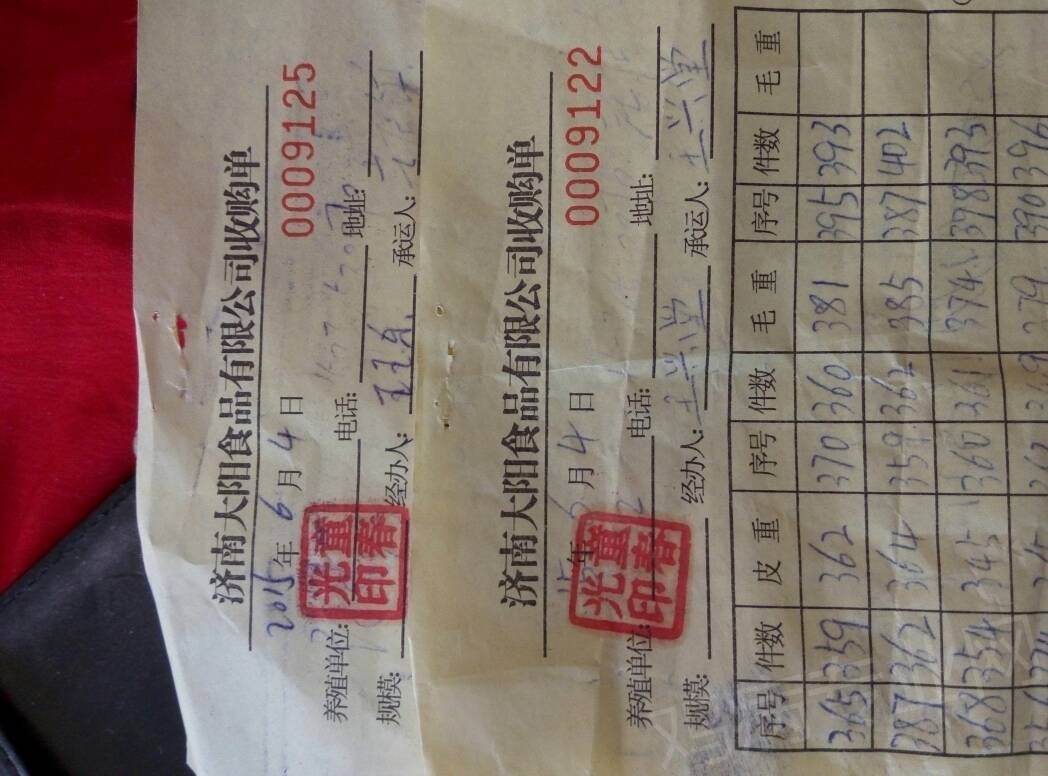 济南大阳食品有限公司收购单
0009125
2015年6月4日
养殖单位: 电话: 地址:
规模: 经办人: 承运人:
童春光印
济南大阳食品有限公司收购单
0009122
15年6月4日
养殖单位: 电话: 地址:
规模: 经办人:王兴堂 承运人:王兴堂
童春光印
序号 件数 皮重 序号 件数 毛重 序号 件数 毛重
365 359 362 370 360 381 395 393
387 362 364 359 362 385 387 402
368 354 345 360 361 374 398 393
369 379 390 396